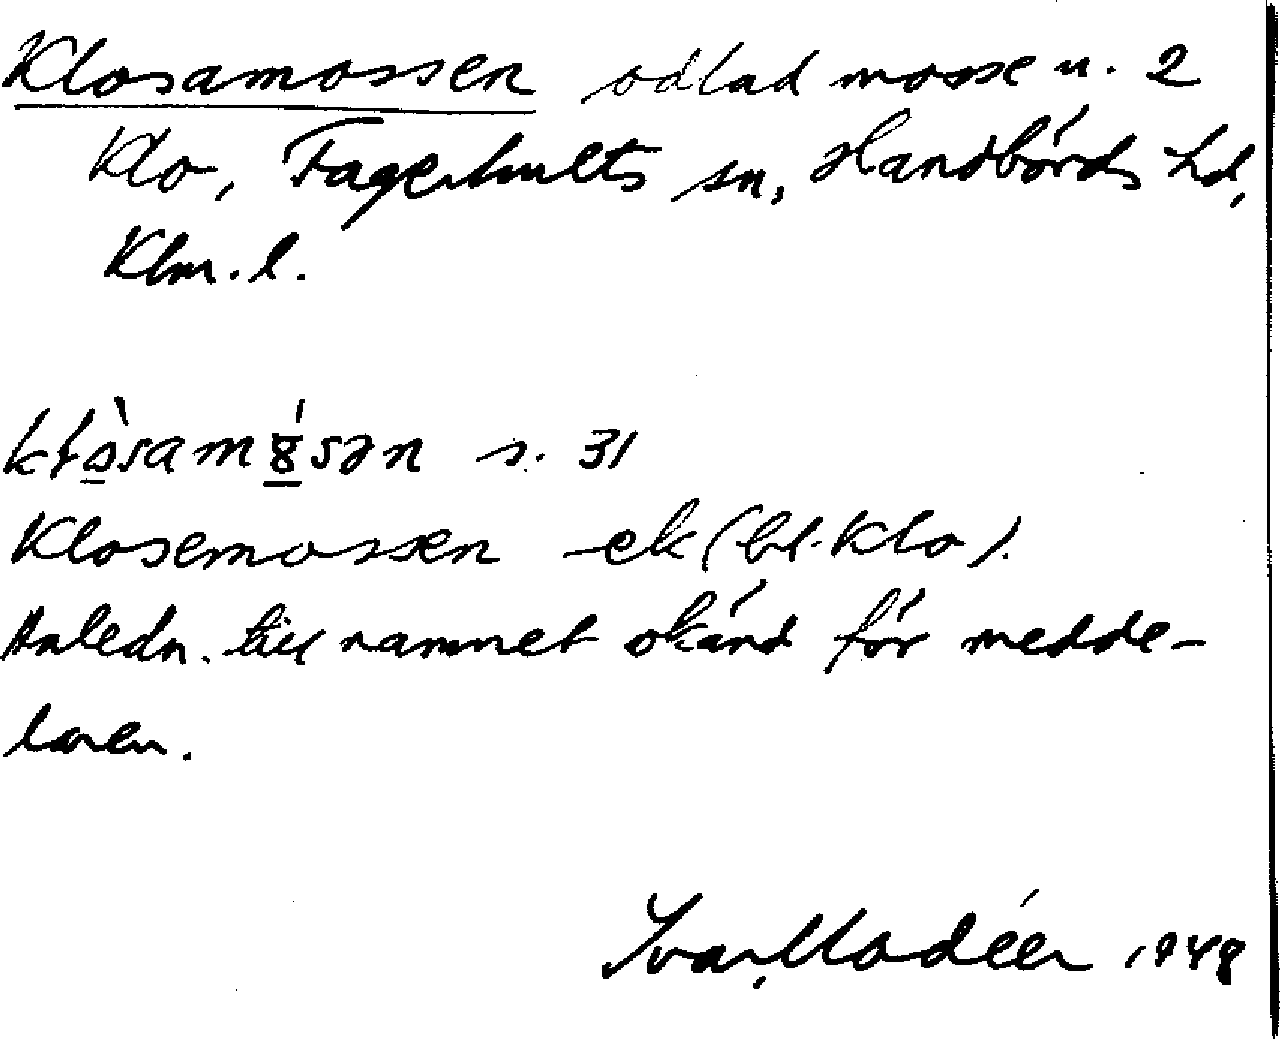 Klosamossen odlad mosse u. 2
Klo, Fagerhults sn, Handbörds hd,
Klm. l.
s. 31
Klosemossen -ek (bl. Klo).
Anledn. till namnet okänd för medde-
laren.
Ivar Modéer 1948